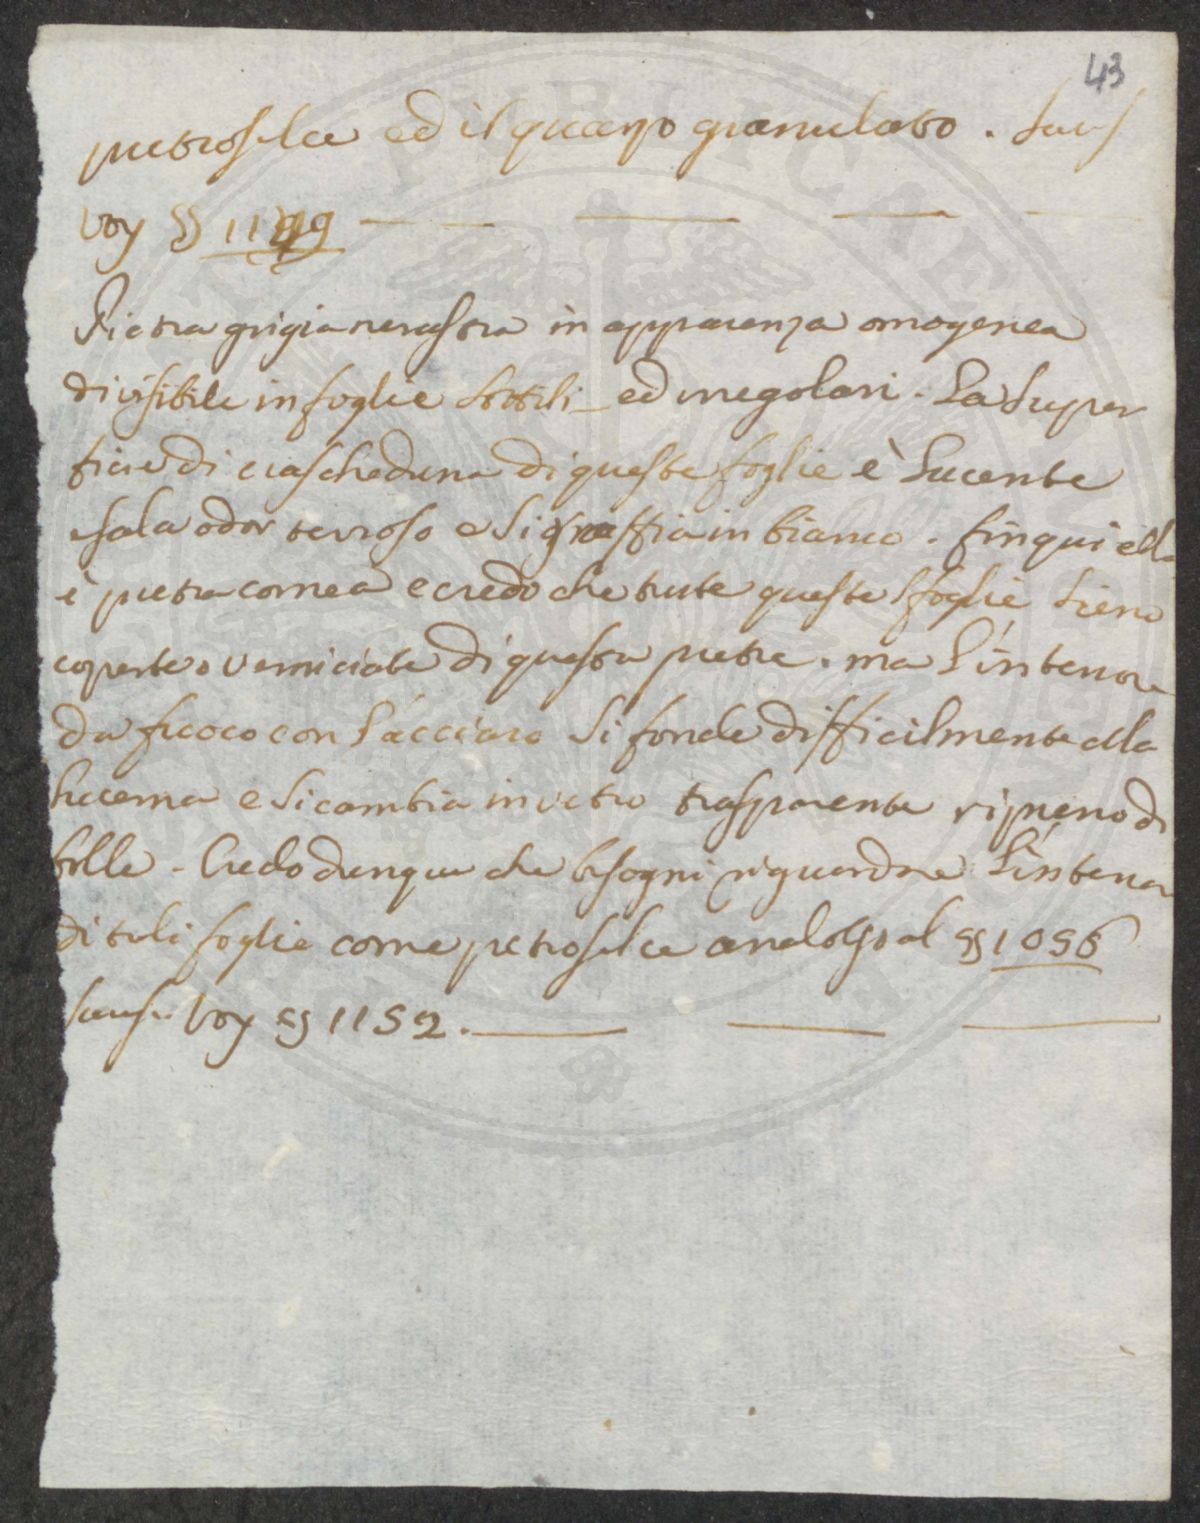 43
petroselce ed il quarzo granulato. Saus
Voy §§ 1149
Pietra grigia nerastra in apparenza omogenea
divisibile in foglie sottili ed irregolari. La super
ficie di ciascheduna di queste foglie è lucente
esala odor terroso e si graffia in bianco. fin qui ella
è pietra cornea e credo che tutte queste sfoglie sieno
coperte o verniciate di questa pietra. ma l'interiore
da fuoco con l'acciaro si fonde difficilmente alla
lucerna e si cambia in vetro trasparente ripieno di
bolle. Credo dunque che bisogni riguardare l'interior
di tali foglie come petroselce analogo al §§ 1056
Saus. Voy §§ 1152.